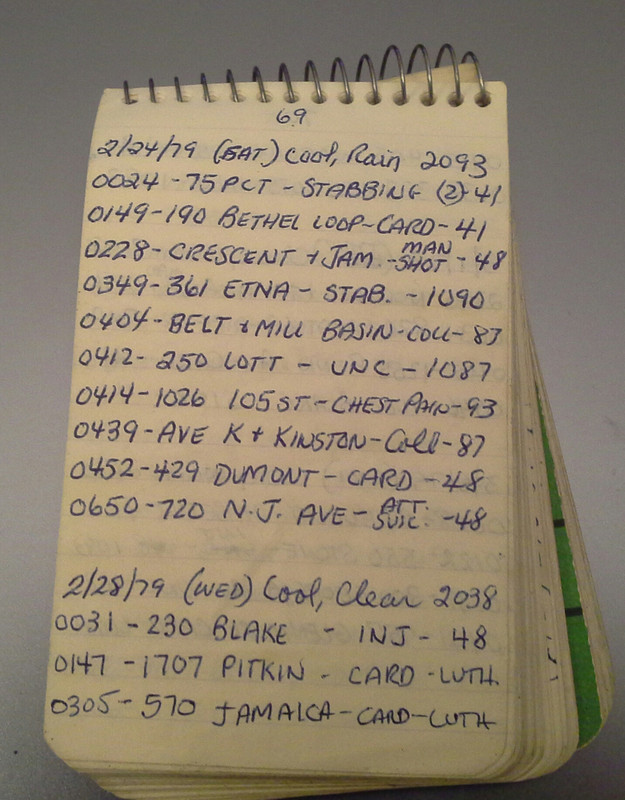 69
2/24/79 (SAT) Cool, Rain 2093
0024 - 75 PCT - STABBING (2) - 41
0149 - 190 BETHEL LOOP - CARD - 41
0228 - CRESCENT + JAM. - MAN SHOT - 48
0349 - 361 ETNA - STAB. - 1090
0404 - BELT + MILL BASIN - COLL - 83
0412 - 250 LOTT - UNC - 1087
0414 - 1026 105 ST - CHEST PAIN - 93
0439 - AVE K + KINSTON - Coll - 87
0452 - 429 DUMONT - CARD - 48
0650 - 720 N.J. AVE - ATT. SUIC. - 48
2/28/79 (WED) Cool, Clear 2038
0031 - 230 BLAKE - INJ - 48
0147 - 1707 PITKIN - CARD - LUTH.
0305 - 570 JAMAICA - CARD - LUTH